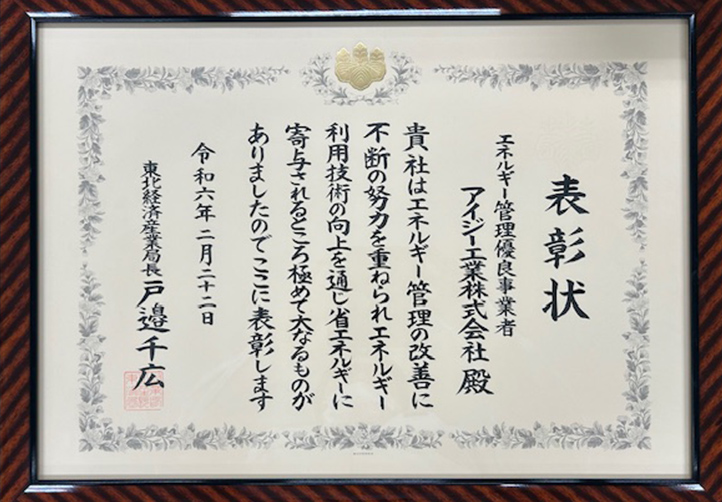 表彰状
エネルギー管理優良事業者
アイジー工業株式会社 殿
貴社はエネルギー管理の改善に
不断の努力を重ねられエネルギー
利用技術の向上を通じ省エネルギーに
寄与されるところ極めて大なるものが
ありましたのでここに表彰します
令和六年二月二十二日
東北経済産業局長 戸邉千広